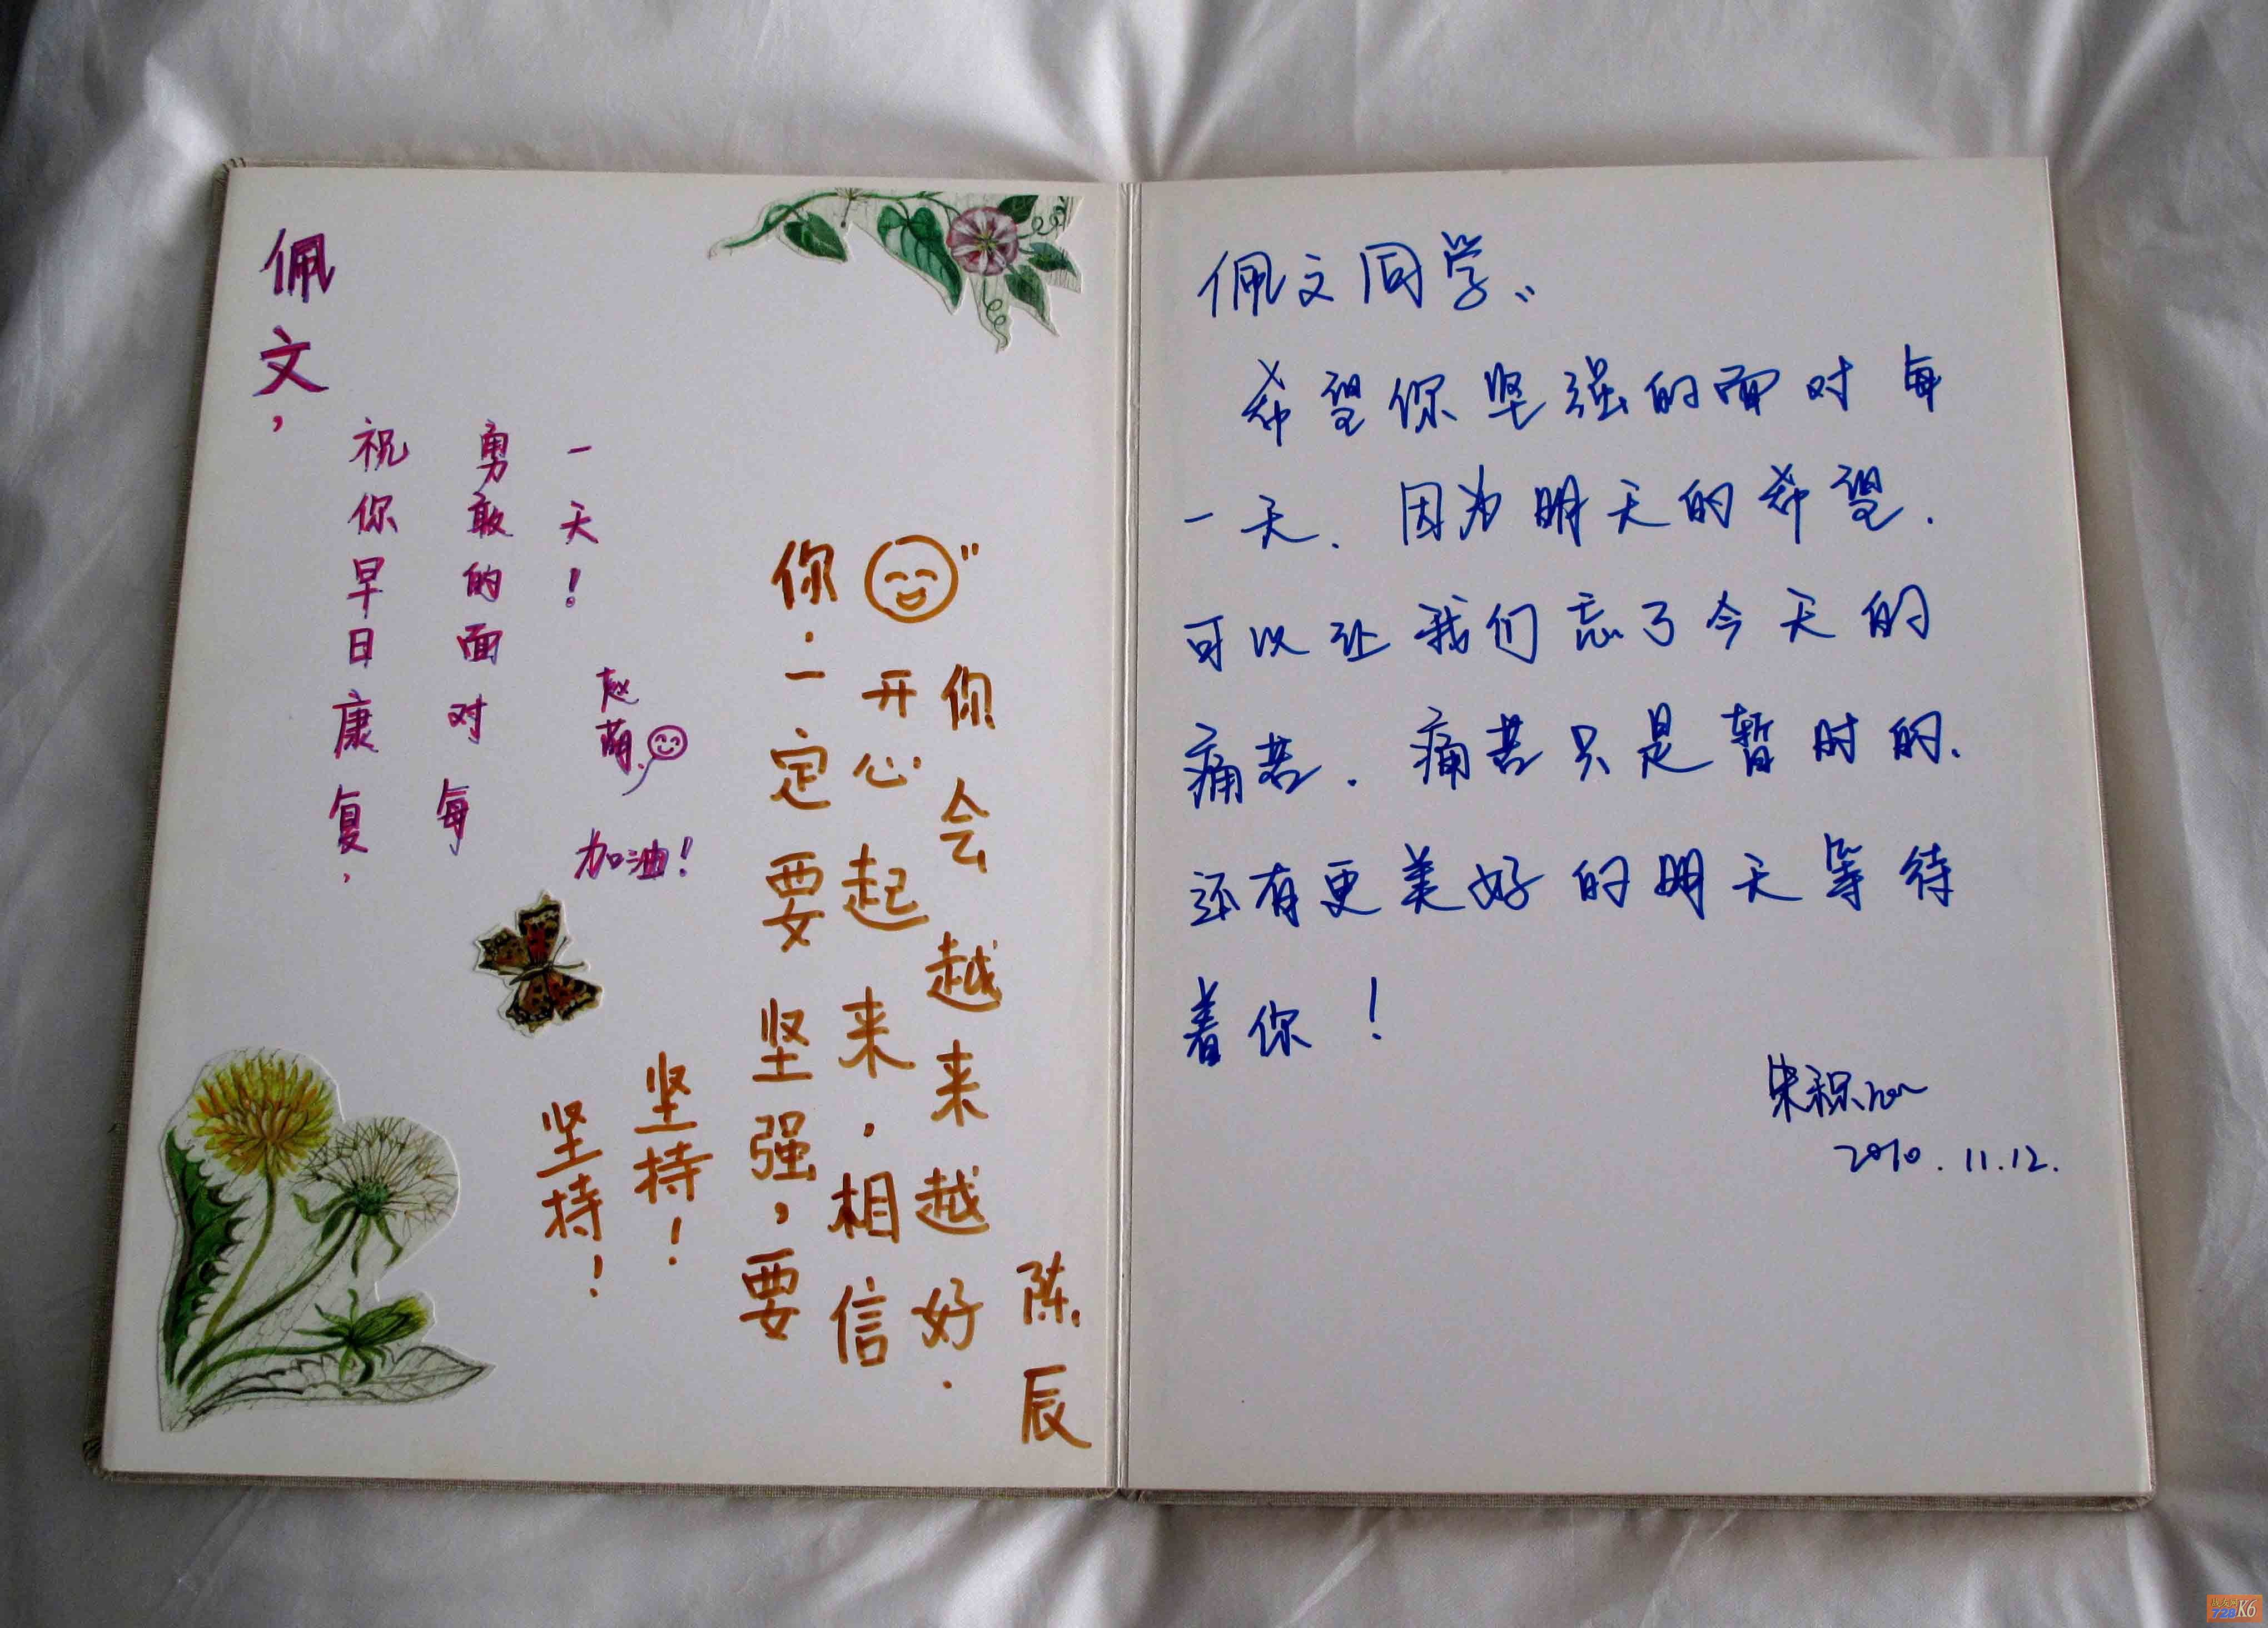 佩文，
祝你早日康复，
勇敢的面对每
一天！
赵萌
加油！
你．一定要坚强，要
开心起来．相信
你会越来越好．
陈辰
坚持！
坚持！
佩文同学：
希望你坚强的面对每
一天．因为明天的希望．
可以让我们忘了今天的
痛苦．痛苦只是暂时的．
还有更美好的明天等待
着你！
2010.11.12.
728K6